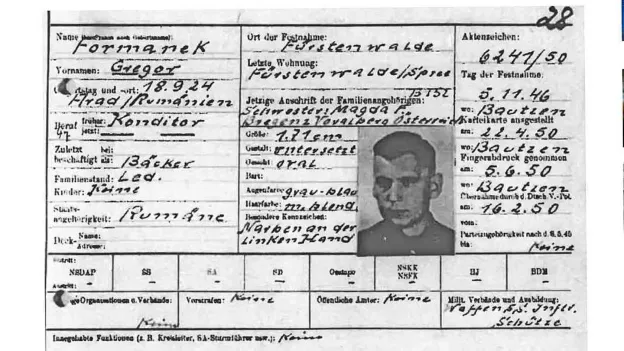 28
Name
Formanek
Vornamen: Gregor
Geburtstag und -ort: 18.9.24
Arad/Rumänien
Beruf früher: Konditor
jetzt:
Zuletzt bei:
beschäftigt als: Bäcker
Familienstand: Led.
Kinder: Keine
Staats-
angehörigkeit: Rumäne
Deck- Name:
Adresse:
Ort der Festnahme:
Fürstenwalde
Letzte Wohnung:
Fürstenwalde/Spree
Jetzige Anschrift der Familienangehörigen:
Schwester: Magda F.
Bregenz Voralberg Österreich
Größe: 1.71 cm
Gestalt: untersetzt
Gesicht: oval
Bart:
Augenfarbe: grau-blau
Haarfarbe: m. blond
Besondere Kennzeichen:
Narben an der
linken Hand
Aktenzeichen:
6241/50
Tag der Festnahme:
5.11.46
wo: Bautzen
Karteikarte ausgestellt
am: 22.4.50
wo: Bautzen
Fingerabdruck genommen
am: 5.6.50
wo: Bautzen
Übernahme durch d. Dtsch. V.-Pol.
am: 16.2.50
vom:
Parteizugehörigkeit nach d. 8.5.45
bis: Keine
NSDAP SS SA SD Gestapo NSKK HJ BDM
NSFK
Organisationen u. Verbände:
Kein
Vorstrafen: Keine
Öffentliche Ämter: Keine
Milit. Verbände und Ausbildung:
Waffen S.S. Inftr.
Schütze
Innegehabte Funktionen (z. B. Kreisleiter, SA-Sturmführer usw.): Keine